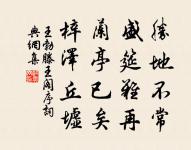 勝地不常
盛筵難再
蘭亭已矣
梓澤丘墟
王勃滕王閣序詞
典網集